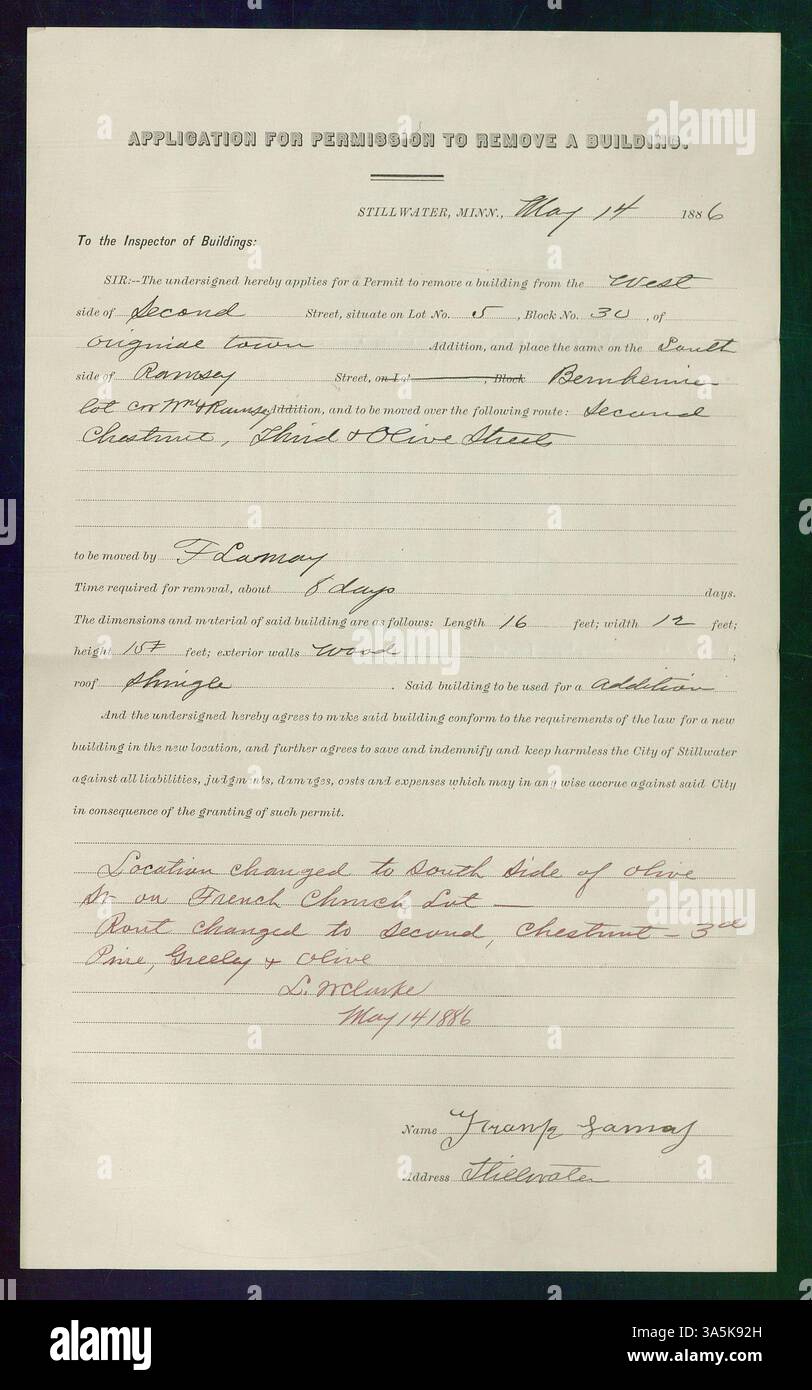 APPLICATION FOR PERMISSION TO REMOVE A BUILDING.
STILLWATER, MINN., May 14 1886
To the Inspector of Buildings:
SIR:--The undersigned hereby applies for a Permit to remove a building from the West
side of Second Street, situate on Lot No. 5, Block No. 30, of
original town Addition, and place the same on the South
side of Ramsey Street, on Lot , Block
lot cor & Ramsey Addition, and to be moved over the following route: Second
Chestnut, Third & Olive Streets
to be moved by F Lamay
Time required for removal, about 8 days days.
The dimensions and material of said building are as follows: Length 16 feet; width 12 feet;
height 15 feet; exterior walls Wood ;
roof Shingle . Said building to be used for a addition
And the undersigned hereby agrees to make said building conform to the requirements of the law for a new
building in the new location, and further agrees to save and indemnify and keep harmless the City of Stillwater
against all liabilities, judgments, damages, costs and expenses which may in any wise accrue against said City
in consequence of the granting of such permit.
Location changed to South Side of Olive
St on French Church Lot —
Rout changed to Second, Chestnut - 3rd
Pine, Greeley & Olive
L. W Clarke
May 14 1886
Name Frank Lamay
Address Stillwater
alamy
alamy
Image ID: 3A5K92H
www.alamy.com